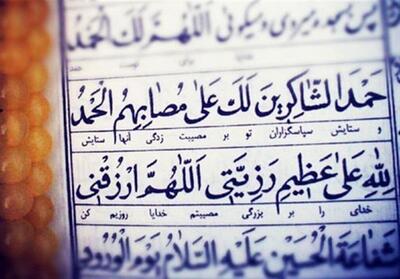 پس بسجده میروی و میگوئی اَللّٰهُمَّ لَكَ الْحَمْدُ
حَمْدَ الشّاكِرينَ لَكَ عَلىٰ مُصابِهِمْ اَلْحَمْدُ
و ستایش سپاسگزاران تو بر مصیبت زدگی آنها ستایش
لِلّٰهِ عَلىٰ عَظيمِ رَزِيَّتي اَللّٰهُمَّ ارْزُقْني
خدای را بر بزرگی مصیبتم خدایا روزیم کن
شَفاعَةَ الْحُسَيْنِ عَلَيْهِ السَّلامُ يَوْمَ الْوُرُودِ